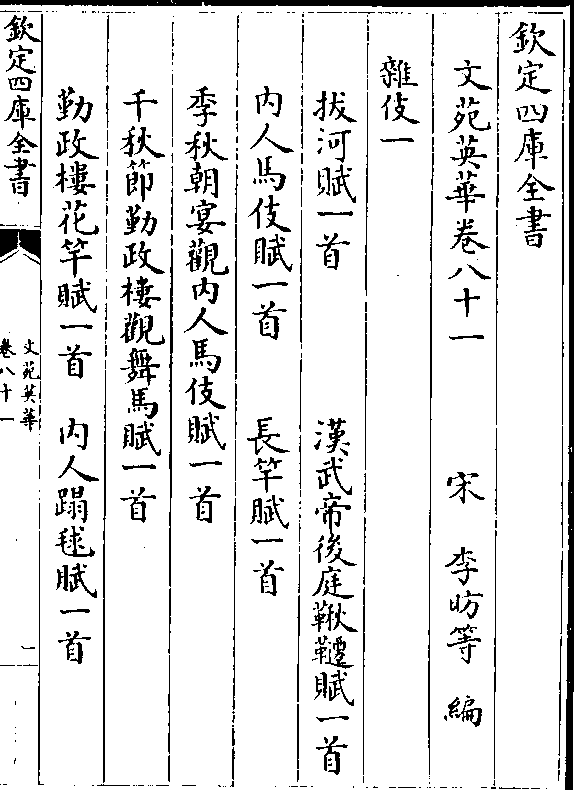 欽定四庫全書
文苑英華卷八十一
宋 李昉等 編
雜伎一
拔河賦一首 漢武帝後庭鞦韆賦一首
内人馬伎賦一首 長竿賦一首
季秋朝宴觀内人馬伎賦一首
千秋節勤政樓觀舞馬賦一首
勤政樓花竿賦一首 内人蹋毬賦一首
欽定四庫全書
文苑英華
卷八十一
一